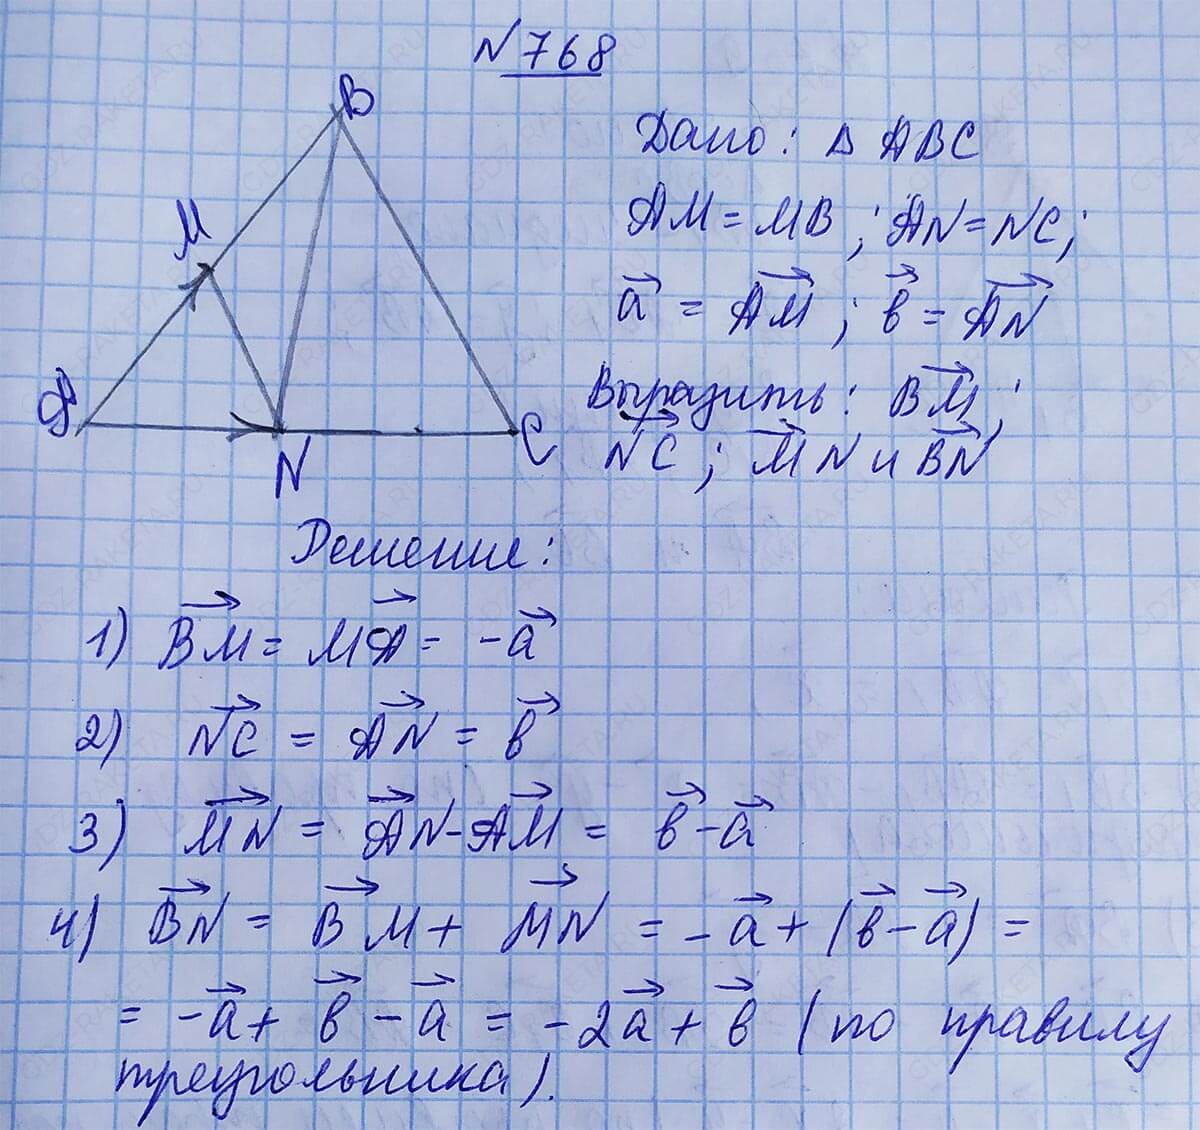 N 768
B
M
A
N
C
Дано: Δ ABC
AM = MB; AN = NC;
a⃗ = AM⃗; b⃗ = AN⃗
Выразить: BM⃗;
NC⃗; MN⃗ и BN⃗
Решение:
1) BM⃗ = MA⃗ = -a⃗
2) NC⃗ = AN⃗ = b⃗
3) MN⃗ = AN⃗ - AM⃗ = b⃗ - a⃗
4) BN⃗ = BM⃗ + MN⃗ = -a⃗ + (b⃗ - a⃗) =
= -a⃗ + b⃗ - a⃗ = -2a⃗ + b⃗ (по правилу
треугольника).